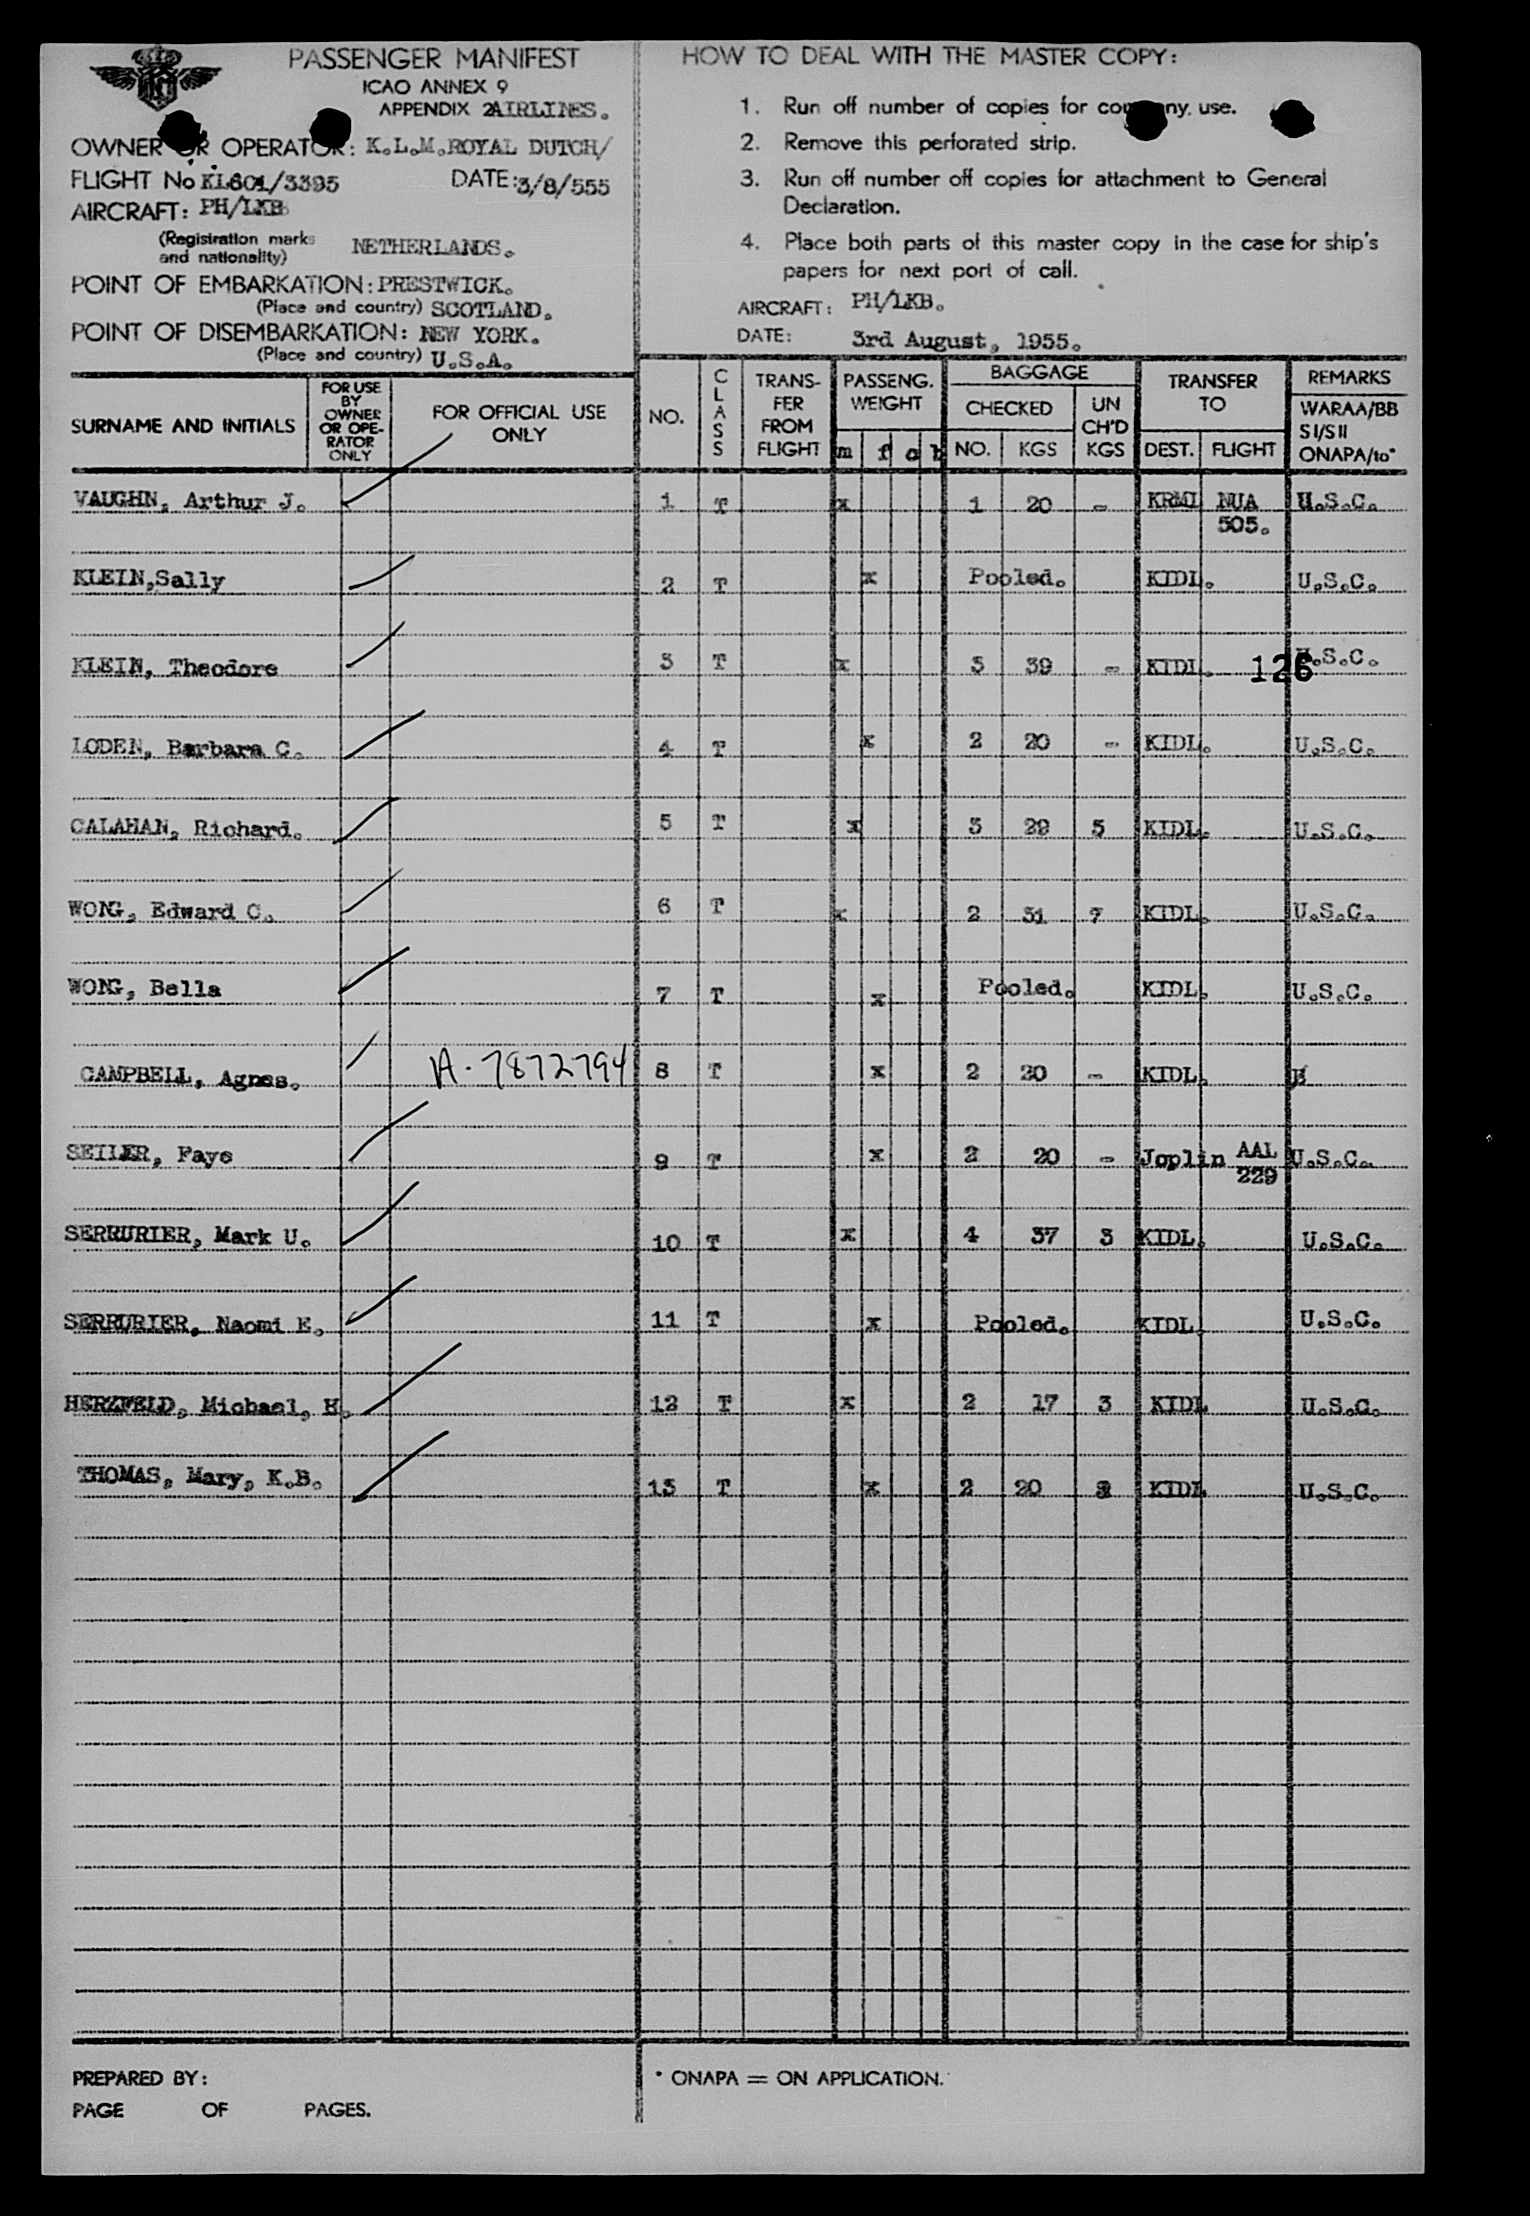 PASSENGER MANIFEST
ICAO ANNEX 9
APPENDIX 2 AIRLINES.
OWNER OR OPERATOR: K.L.M. ROYAL DUTCH/
FLIGHT No KL601/3395 DATE: 3/8/555
AIRCRAFT: PH/LKB
(Registration marks and nationality) NETHERLANDS.
POINT OF EMBARKATION: PRESTWICK.
(Place and country) SCOTLAND.
POINT OF DISEMBARKATION: NEW YORK.
(Place and country) U.S.A.
HOW TO DEAL WITH THE MASTER COPY:
1. Run off number of copies for company use.
2. Remove this perforated strip.
3. Run off number off copies for attachment to General
Declaration.
4. Place both parts of this master copy in the case for ship's
papers for next port of call.
AIRCRAFT: PH/LKB.
DATE: 3rd August, 1955.
SURNAME AND INITIALS
FOR USE BY OWNER OR OPE-RATOR ONLY
FOR OFFICIAL USE ONLY
NO.
CLASS
TRANS-FER FROM FLIGHT
PASSENG. WEIGHT
m f c b
BAGGAGE
CHECKED
NO. KGS
UN CH'D KGS
TRANSFER TO
DEST. FLIGHT
REMARKS
WARAA/BB
SI/SII
ONAPA/to*
VAUGHN, Arthur J. 1 T x 1 20 - KRMI NUA U.S.C.
505.
KLEIN,Sally 2 T x Pooled. KIDL. U.S.C.
KLEIN, Theodore 3 T x 3 39 - KIDL. 126 U.S.C.
LODEN, Barbara C. 4 T x 2 20 - KIDL. U.S.C.
CALAHAN, Richard. 5 T x 3 29 5 KIDL. U.S.C.
WONG, Edward C. 6 T x 2 31 7 KIDL. U.S.C.
WONG, Bella 7 T x Pooled. KIDL. U.S.C.
CAMPBELL, Agnes. A-7872794 8 T x 2 20 - KIDL. B
SEILER, Faye 9 T x 2 20 - Joplin AAL U.S.C.
229
SERRURIER, Mark U. 10 T x 4 37 3 KIDL. U.S.C.
SERRURIER, Naomi E. 11 T x Pooled. KIDL. U.S.C.
HERZFELD, Michael, H. 12 T x 2 17 3 KIDL U.S.C.
THOMAS, Mary, K.B. 13 T x 2 20 KIDL U.S.C.
PREPARED BY:
PAGE OF PAGES.
* ONAPA = ON APPLICATION.